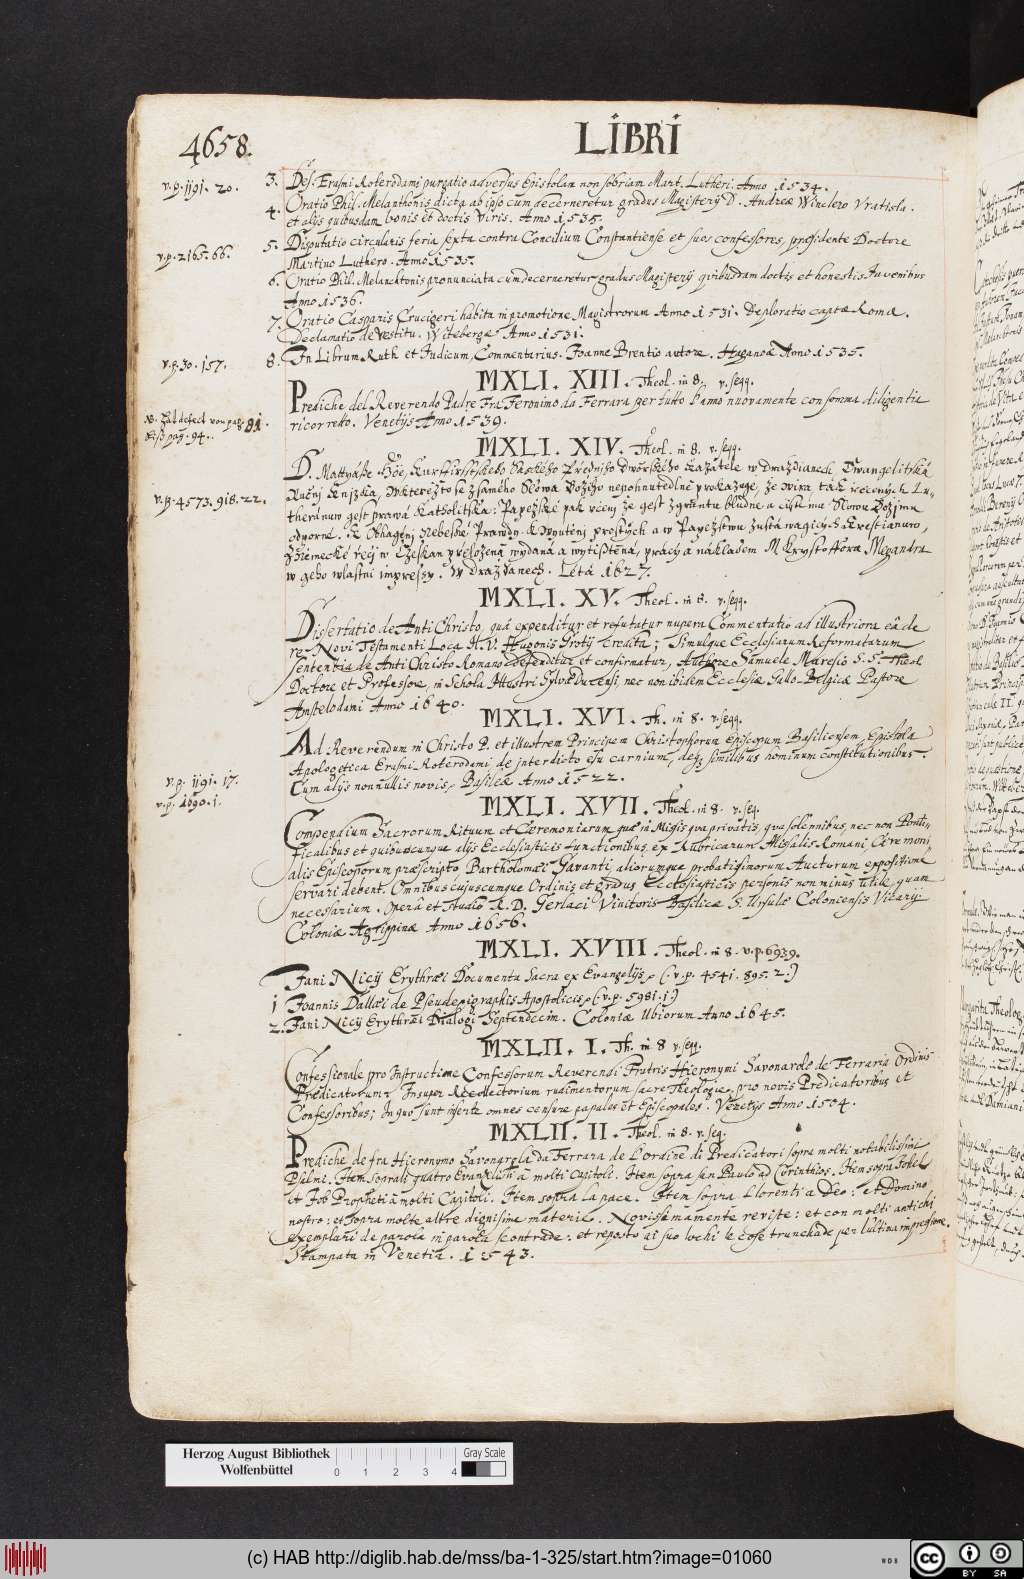 4658.
LIBRI
v.p. 1191. 20. 3. Des. Erasmi Roterodami purgatio adversus Epistolam non sobriam Mart. Lutheri. Anno 1534.
4. Oratio Phil. Melanthonis dicta ab ipso cum decerneretur gradus Magisterij D. Andreæ Winclero Vratisla.
et alijs quibusdam bonis et doctis viris. Anno 1535.
v.p. 2165. 66. 5. Disputatio circularis feria sexta contra Concilium Constantiense et suos confessores, præsidente Doctore
Martino Luthero. Anno 1535.
6. Oratio Phil. Melancktonis pronunciata cum decerneretur gradus Magisterij quibusdam doctis et honestis Iuvenibus
Anno 1536.
7. Oratio Casparis Crucigeri habita in promotione Magistrorum Anno 1531. Deploratio captæ Romæ.
Declamatio de vestitu. Witebergæ Anno 1531.
v.p. 30. 157. 8. In Librum Ruth et Iudicum Commentarius. Joanne Brentio autore. Haganoæ Anno 1535.
MXLI. XIII. Theol. in 8. v. seqq.
Prediche del Reverendo Padre Fra Feronimo da Ferrara per tutto l'anno nuovamente con somma diligentia
ricorretto. Venetijs Anno 1539.
von pag. 91.
pag. 94.
MXLI. XIV. Theol. in 8. v. seqq.
v.p. 4573. 918. 22. D. Mattyáße Hoe, Kurfirsstskeho Saského Předniho Dworského Kazatele w Draždianech Ewangelitská
Ručnj Knjžka, w kterežto se z samého Slowa Božiho nepohnutedlně prokazuge, že wira tak řečených Lu-
theránuw gest prawá Katholitska: Papežské pak včenj že gest zgruntu bludné a čistému Slowu Božjmu
odporné. K Obhagenj Nebeské Prawdy K wyučenj prostých a w Papežstwu zustáwagicých Křestianuw,
Z Německé řeči w Českau přeložená wydaná a wytištěná, pracý a nákladem M. Krysstoffora Megandra
w geho wlastni impressy. W Draždanech. Létá 1627.
MXLI. XV. Theol. in 8. v. seqq.
Dissertatio de Anti Christo, quâ expenditur et refutatur nupera Commentatio ad illustriora eâ de
re Novi Testamenti Loca H. V. Hugonis Grotij Credita; Simulque Ecclesiarum Reformatarum
sententia de Anti Christo Romano defenditur et confirmatur, Authore Samuele Maresio S. S. Theol.
Doctore et Professore, in Schola Illustri Sylvæ Ducensi, nec non ibidem Ecclesiæ Gallo-Belgicæ Pastore
Amstelodami Anno 1640.
MXLI. XVI. Th. in 8. v. seqq.
Ad Reverendum in Christo P. et illustrem Principem Christophorum Episcopum Basiliensem, Epistola
v.p. 1191. 17. Apologetica Erasmi Roterodami de interdicto esu carnium, deq; similibus hominum constitutionibus.
v.p. 1690. 1. Cum alijs nonnullis novis. Basileæ Anno 1522.
MXLI. XVII. Theol. in 8. v. seq.
Compendium Sacrorum Rituum et Cæremoniarum quæ in Missis qua privatis, qua solennibus, nec non Ponti-
ficalibus et quibuscunque alijs Ecclesiasticis functionibus, ex Rubricarum Missalis Romani, Cæremoni-
alis Episcoporum præscripto Bartholomæi Gavanti, aliorumque probatissimorum Auctorum expositione
servari debent. Omnibus cujuscumque Ordinis et Gradus Ecclesiasticis personis non minùs utile quam
necessarium. Operâ et studiô R. D. Gerlaci Vinitoris Basilicæ S. Ursulæ Coloniensis Vicarij
Coloniæ Agrippinæ Anno 1656.
MXLI. XVIII. Theol. in 8. v.p. 6939.
Jani Nicij Erythræi Documenta Sacra ex Evangelijs. (: v.p. 4541. 895. 2.)
1 Joannis Dallæi de Pseudepigraphis Apostolicis. (: v.p. 5981. 1)
2. Jani Nicij Erythræi Dialogi Septendecim. Coloniæ Ubiorum Anno 1645.
MXLII. I. Th. in 8 v. seqq.
Confessionale pro Instructione Confessorum Reverendi Fratris Hieronymi Savonarolæ de Ferraria Ordinis
Prædicatorum. Insuper Recollectorium rudimentorum sacre Theologie, pro novis Predicatoribus et
Confessoribus; In quo sunt inserte omnes censure papales et Episcopales. Venetijs Anno 1504.
MXLII. II. Theol. in 8. v. seq.
Prediche de fra Hieronymo Savonarola da Ferrara de l'ordine di Predicatori sopra molti notabilissimi
Psalmi. Item sopra li quatro Evangelisti a molti Capitoli. Item sopra san Paulo ad Corinthios. Item sopra Johel
et Job Propheti a molti Capitoli. Item sopra la pace. Item sopra Llorenti a Deo: et Domino
nostro: et sopra molte altre dignissime materie. Novissimamente reviste: et con molti antichi
exemplari de parola in parola scontrade: et reposto ai suo lochi le cose trunchade per l'ultima impressione.
Stampata in Venetia. 1543.
Herzog August Bibliothek
Wolfenbüttel
0 1 2 3 4
Gray Scale
(c) HAB http://diglib.hab.de/mss/ba-1-325/start.htm?image=01060
WDB
cc BY SA